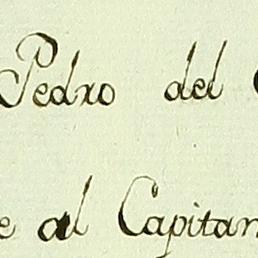 Pedro del
e al Capitan